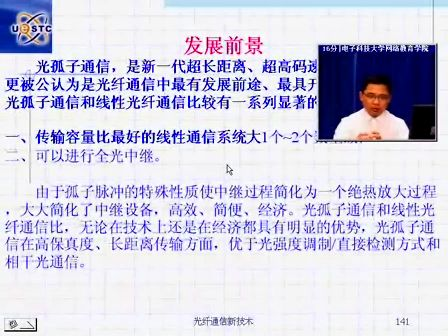 UESTC
发展前景
16分|电子科技大学网络教育学院
光孤子通信，是新一代超长距离、超高码速
更被公认为是光纤通信中最有发展前途、最具开
光孤子通信和线性光纤通信比较有一系列显著的
一、传输容量比最好的线性通信系统大1个~2个
二、可以进行全光中继。
由于孤子脉冲的特殊性质使中继过程简化为一个绝热放大过程
，大大简化了中继设备，高效、简便、经济。光孤子通信和线性光
纤通信比，无论在技术上还是在经济都具有明显的优势，光孤子通
信在高保真度、长距离传输方面，优于光强度调制/直接检测方式和
相干光通信。
光纤通信新技术
141